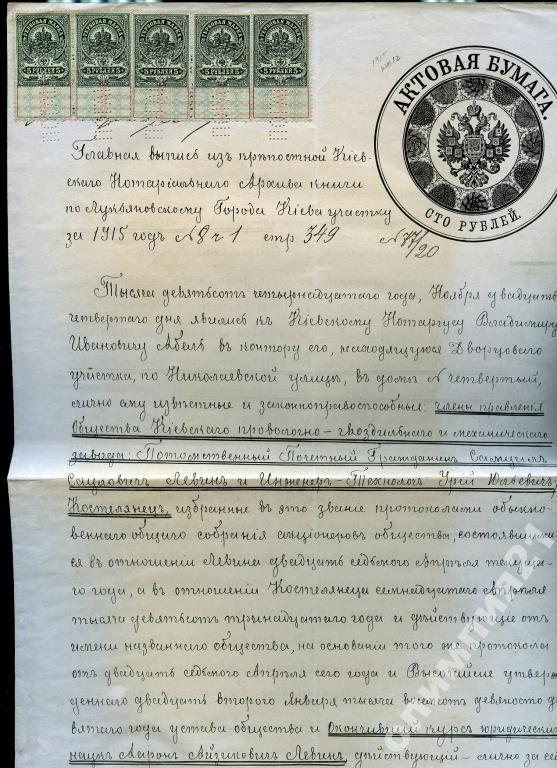 ГЕРБОВАЯ МАРКА ГЕРБОВАЯ МАРКА ГЕРБОВАЯ МАРКА ГЕРБОВАЯ МАРКА ГЕРБОВАЯ МАРКА
5 РУБЛЕЙ 5 5 РУБЛЕЙ 5 5 РУБЛЕЙ 5 5 РУБЛЕЙ 5 5 РУБЛЕЙ 5
1915
АКТОВАЯ БУМАГА.
СТО РУБЛЕЙ.
Главная выпись изъ крѣпостной Кіев-
скаго Нотаріальнаго Архива книги
по Лукьяновскому Города Кіева участку
за 1915 годъ № 8 ч 1 стр 349 № 77/20
Тысяча девятьсотъ четырнадцатаго года, Ноября двадцать
четвертаго дня явились къ Кіевскому Нотаріусу Владиміру
Ивановичу Абель въ контору его, находящуюся Дворцоваго
участка, по Николаевской улицѣ, въ домѣ № четвертый,
лично ему извѣстные и законноправоспособные: члены правленія
Общества Кіевскаго проволочно-гвоздильнаго и механическаго
завода: Потомственный Почетный Гражданинъ Самуилъ
Сауловичъ Левинъ и Инженеръ-Технологъ Урій Юльевичъ
Костелянецъ, избранные въ это званіе протоколами обыкно-
веннаго общаго собранія акціонеровъ общества, состоявшими-
ся въ отношеніи Левина двадцать седьмого Апрѣля текуща-
го года, а въ отношеніи Костелянеца семнадцатаго Апрѣля
тысяча девятьсотъ тринадцатаго года и дѣйствующіе отъ
имени названнаго общества, на основаніи того же протокола
отъ двадцать седьмого Апрѣля сего года и Высочайше утверж-
деннаго двадцать второго Января тысяча восемьсотъ девяносто де-
вятаго года устава общества и Окончившій курсъ юридическихъ
наукъ Ааронъ Айзиковичъ Левинъ, дѣйствующій - лично за себ
ОЛИМПИЯ21